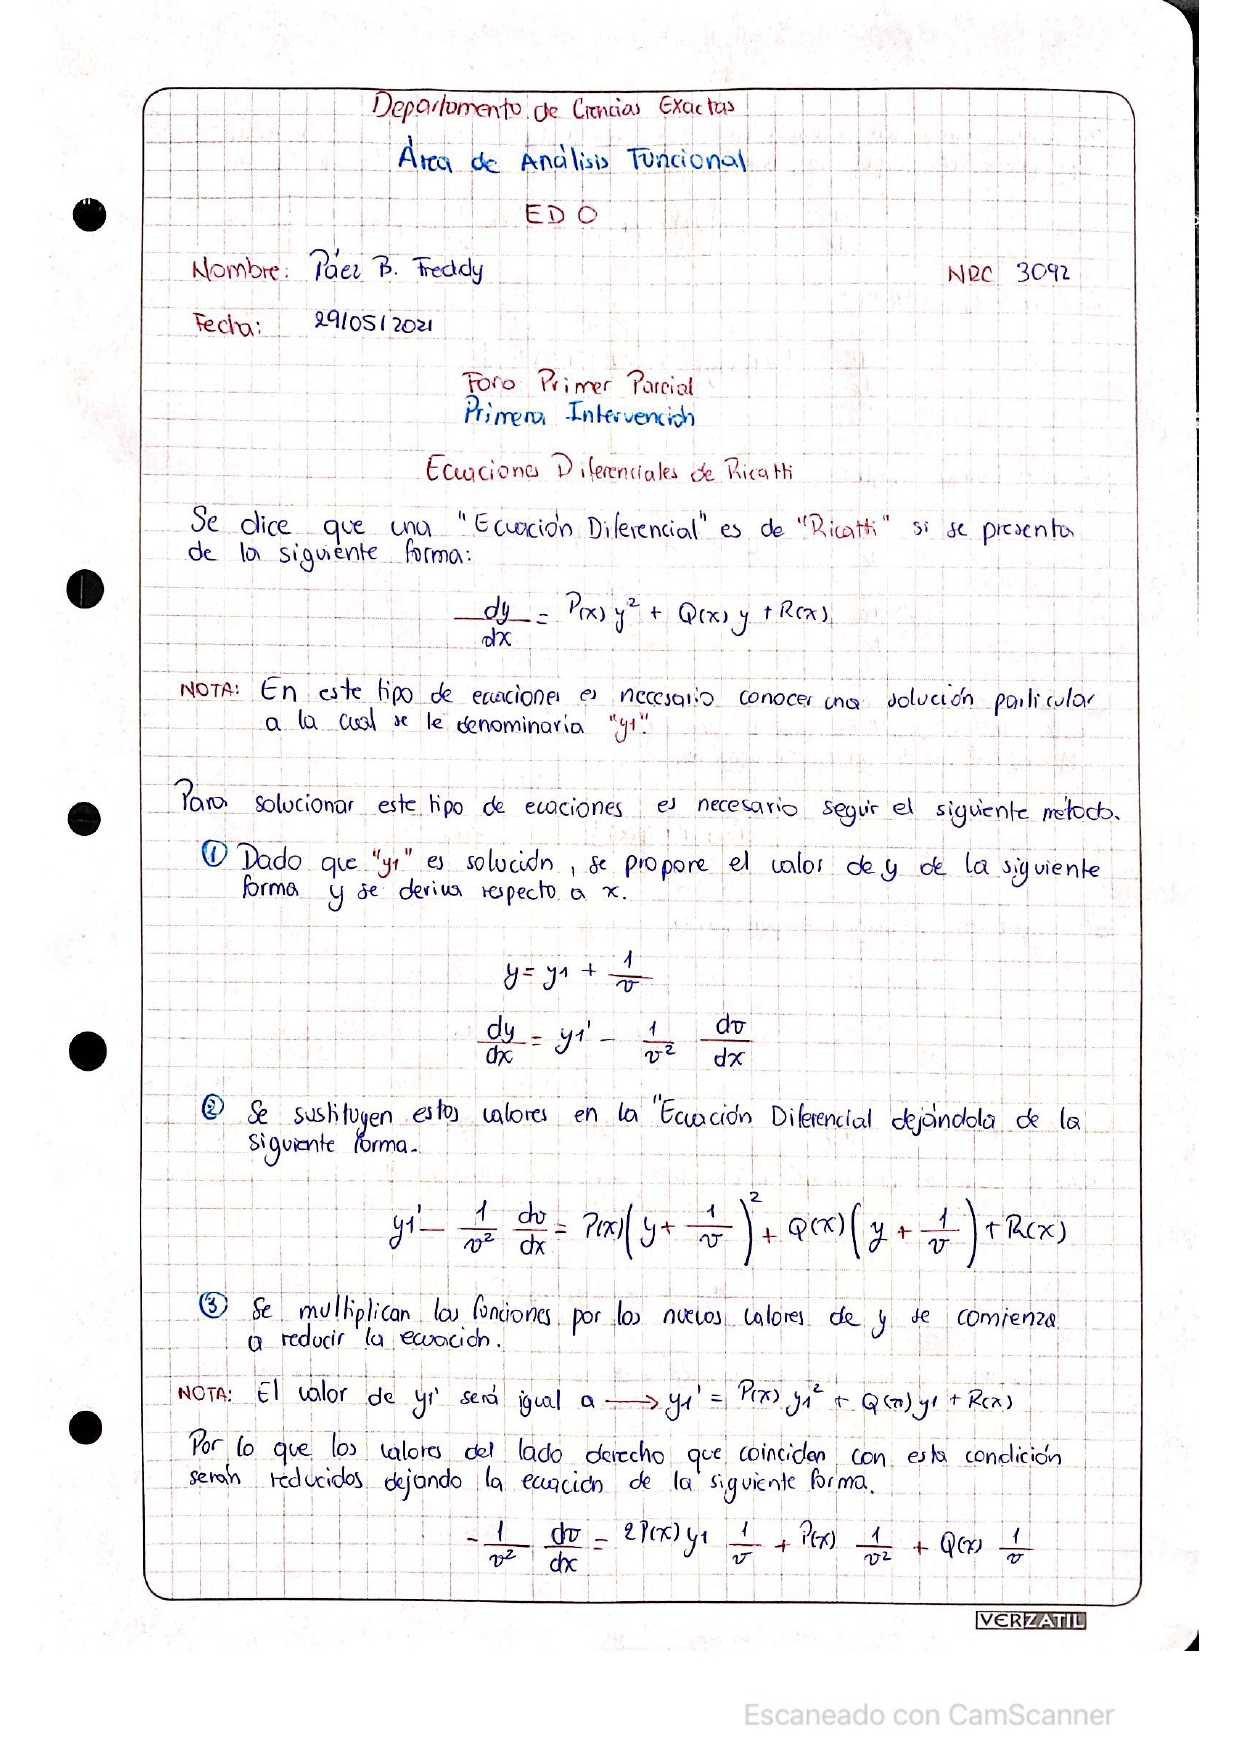 Departamento de Ciencias Exactas
Área de Análisis Funcional
EDO
Nombre: Páez B. Freddy NRC 3092
Fecha: 29/05/2021
Foro Primer Parcial
Primera Intervención
Ecuaciones Diferenciales de Ricatti
Se dice que una "Ecuación Diferencial" es de "Ricatti" si se presenta
de la siguiente forma:
dy/dx = P(x) y² + Q(x) y + R(x)
NOTA: En este tipo de ecuaciones es necesario conocer una solución particular
a la cual se le denominaria "y1".
Para solucionar este tipo de ecuaciones es necesario seguir el siguiente método.
① Dado que "y1" es solución, se propone el valor de y de la siguiente
forma y se deriva respecto a x.
y = y1 + 1/v
dy/dx = y1' - 1/v² dv/dx
② Se sustituyen estos valores en la "Ecuación Diferencial dejándola de la
siguiente forma.
y1' - 1/v² dv/dx = P(x)(y + 1/v)² + Q(x)(y + 1/v) + R(x)
③ Se multiplican las funciones por los nuevos valores de y se comienza
a reducir la ecuación.
NOTA: El valor de y1' será igual a → y1' = P(x) y1² + Q(x) y1 + R(x)
Por lo que los valores del lado derecho que coincidan con esta condición
serán reducidos dejando la ecuación de la siguiente forma.
- 1/v² dv/dx = 2P(x) y1 1/v + P(x) 1/v² + Q(x) 1/v
VERZATIL
Escaneado con CamScanner